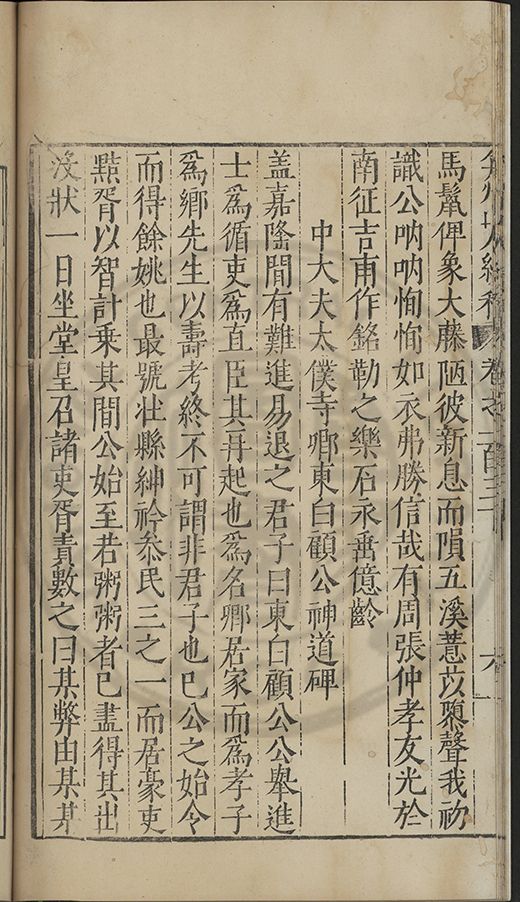 弇州山人續稿 卷之一百三十 六
馬鬣俾象大藤陋彼新息而隕五溪薏苡隳聲我初
識公吶吶恂恂如衣弗勝信哉有周張仲孝友光於
南征吉甫作銘勒之樂石永垂億齡
中大夫太僕寺卿東白顧公神道碑
盖嘉隆間有難進易退之君子曰東白顧公公舉進
士爲循吏爲直臣其再起也爲名卿居家而爲孝子
爲鄉先生以壽考終不可謂非君子也已公之始令
而得餘姚也最號壯縣紳衿叅民三之一而居豪吏
黠胥以智計乗其間公始至若粥粥者已盡得其出
沒狀一日坐堂皇召諸吏胥責數之曰某弊由某某